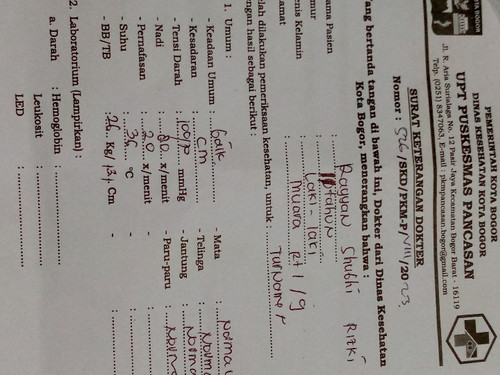 PEMERINTAH KOTA BOGOR
DINAS KESEHATAN KOTA BOGOR
UPT PUSKESMAS PANCASAN
Jl. R. Aria Surialaga No. 12 Pasir Jaya Kecamatan Bogor Barat - 16119
Telp. (0251) 8347063, E-mail : pkmpancasan.bogor@gmail.com
SURAT KETERANGAN DOKTER
Nomor : /SKD/PKM-P/VIII/2023
Yang bertanda tangan di bawah ini, Dokter dari Dinas Kesehatan
Kota Bogor, menerangkan bahwa :
ama Pasien : Rayyan Shubhi Rizki
mur : 11 tahun
enis Kelamin : Laki - laki
amat : Muara Rt 1/9
elah dilakukan pemeriksaan kesehatan, untuk : Turnamen
ngan hasil sebagai berikut :
1. Umum :
- Keadaan Umum : baik - Mata : Normal
- Kesadaran : CM - Telinga : Normal
- Tensi Darah : 100/70 mmHg - Jantung : Normal
- Nadi : 80 x/menit - Paru-paru : Normal
- Pernafasan : 20 x/menit -
- Suhu : 36 °C -
- BB/TB : 26 Kg/134 Cm -
2. Laboratorium (Lampirkan) :
a. Darah : Hemoglobin :
Leukosit :
LED :